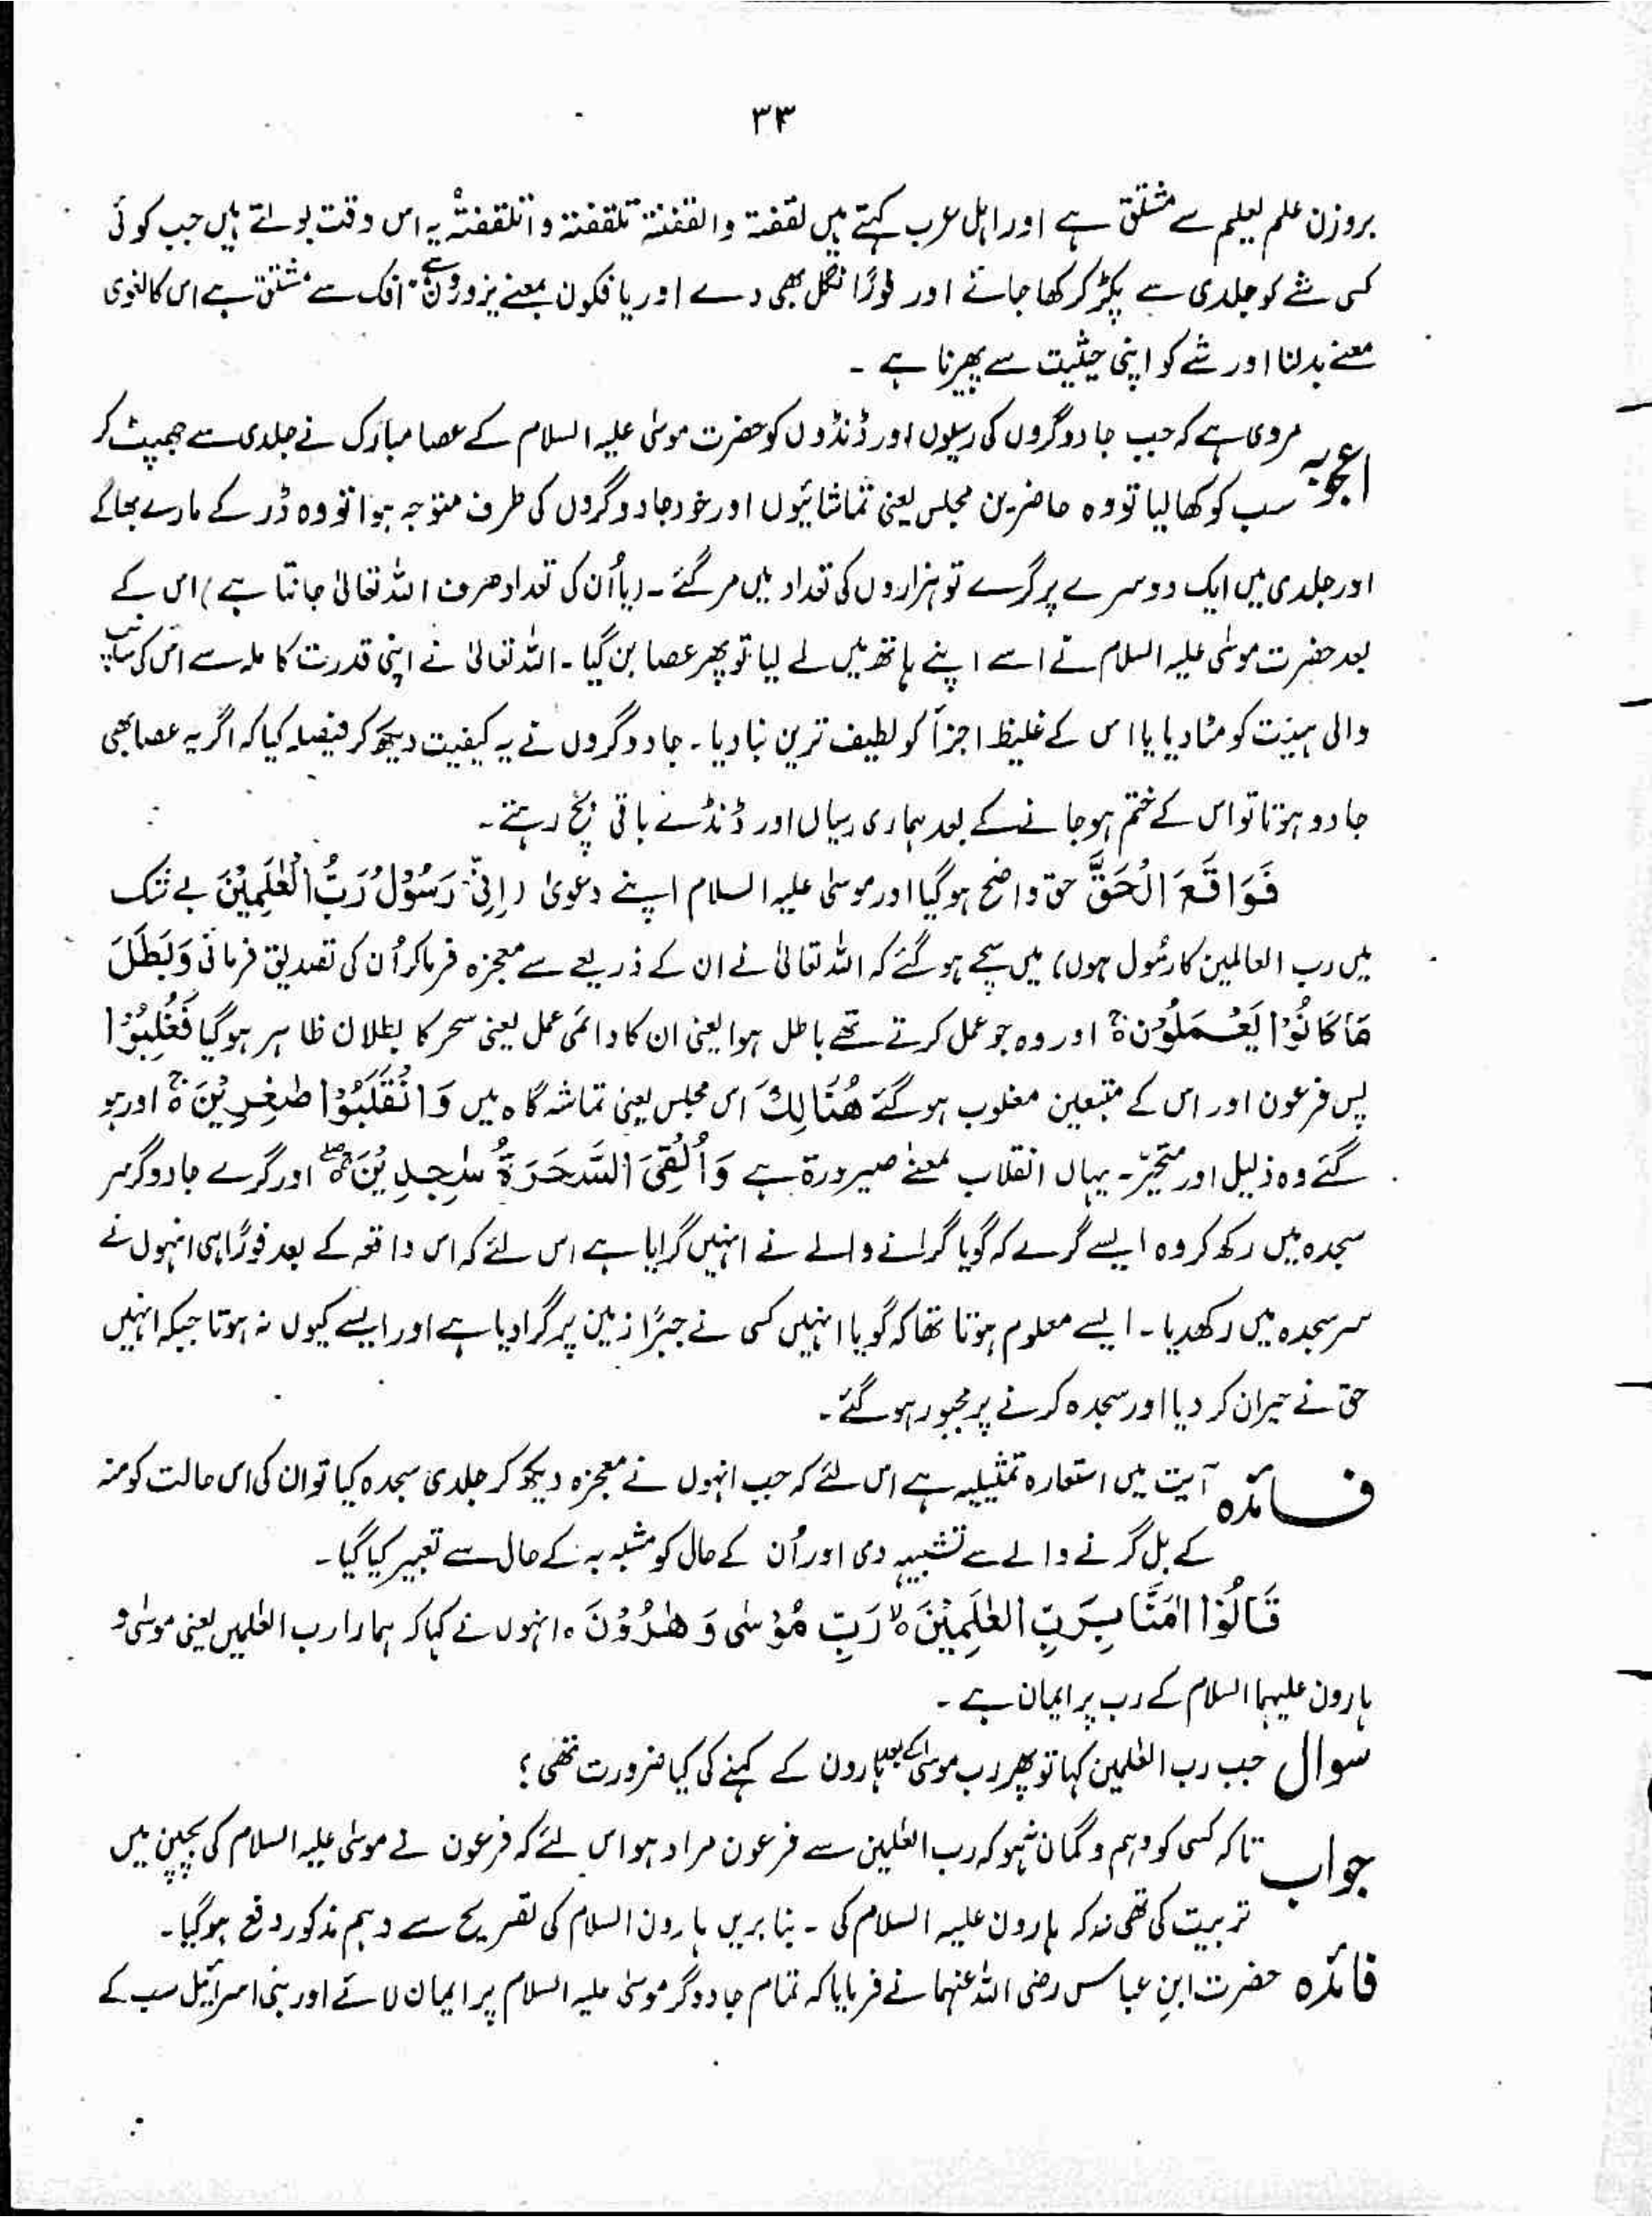 ٣٣
بروزن علم لعیلم سے مشتق ہے اور اہل عرب کہتے ہیں لقفتہ والقفتہ تلقفتہ واتلقفتہٗ یہ اس وقت بولتے ہیں جب کوئی
کسی شے کو جلدی سے پکڑ کر کھا جائے اور فورًا نگل بھی دے اور یافکون بمعنے یزورون ہے۔ افک سے مشتق ہے اس کا لغوی
معنے بدلنا اور شے کو اپنی حیثیت سے پھیرنا ہے ۔
اعجوبہ مروی ہے کہ جب جادوگروں کی رسیوں اور ڈنڈوں کو حضرت موسٰی علیہ السلام کے عصا مبارک نے جلدی سے جھپٹ کر
سب کو کھا لیا تو وہ حاضرین مجلس یعنی تماشائیوں اور خود جادوگروں کی طرف متوجہ ہوا تو وہ ڈر کے مارے بھاگے
اور جلدی میں ایک دوسرے پر گرے تو ہزاروں کی تعداد میں مر گئے ۔ (یا اُن کی تعداد صرف اللہ تعالیٰ جانتا ہے) اس کے
بعد حضرت موسٰی علیہ السلام نے اسے اپنے ہاتھ میں لے لیا تو پھر عصا بن گیا ۔ اللہ تعالیٰ نے اپنی قدرت کاملہ سے اس کی سانپ
والی ہیئت کو مٹا دیا یا اس کے غلیظ اجزأ کو لطیف ترین بنا دیا ۔ جادوگروں نے یہ کیفیت دیکھ کر فیصلہ کیا کہ اگر یہ عصا بھی
جادو ہوتا تو اس کے ختم ہو جانے کے بعد ہماری رسیاں اور ڈنڈے باقی بچ رہتے ۔
فَوَاقَعَ الْحَقُّ حق واضح ہو گیا اور موسٰی علیہ السلام اپنے دعویٰ (اِنِّیْ رَسُوْلُ رَبِّ الْعٰلَمِیْنَ بے شک
میں رب العالمین کا رسُول ہوں) میں سچے ہو گئے کہ اللہ تعالیٰ نے ان کے ذریعے سے معجزہ فرما کر اُن کی تصدیق فرمائی وَبَطَلَ
مَا کَانُوْا یَعْمَلُوْنَ ۚ اور وہ جو عمل کرتے تھے باطل ہوا یعنی ان کا دائمی عمل یعنی سحر کا بطلان ظاہر ہو گیا فَغُلِبُوْا
پس فرعون اور اس کے متبعین مغلوب ہو گئے ھُنَالِكَ اس مجلس یعنی تماشہ گاہ میں وَانْقَلَبُوْا صٰغِرِیْنَ ۚ اور ہو
گئے وہ ذلیل اور متحیّر ۔ یہاں انقلاب بمعنے صیرورۃ ہے وَاُلْقِیَ السَّحَرَةُ سٰجِدِیْنَ ۚۖ اور گرے جادوگر سر
سجدہ میں رکھ کر وہ ایسے گرے کہ گویا گرانے والے نے انہیں گرایا ہے اس لئے کہ اس واقعہ کے بعد فورًا ہی انہوں نے
سر سجدہ میں رکھدیا ۔ ایسے معلوم ہوتا تھا کہ گویا انہیں کسی نے جبرًا زمین پر گرا دیا ہے اور ایسے کیوں نہ ہوتا جبکہ انہیں
حق نے حیران کر دیا اور سجدہ کرنے پر مجبور ہو گئے ۔
فائدہ آیت میں استعارہ تمثیلیہ ہے اس لئے کہ جب انہوں نے معجزہ دیکھ کر جلدی سجدہ کیا تو ان کی اس حالت کو منہ
کے بل گرنے والے سے تشبیہ دی اور اُن کے حال کو مشبہ بہ کے حال سے تعبیر کیا گیا ۔
قَالُوْا اٰمَنَّا بِرَبِّ الْعٰلَمِیْنَ ۙ رَبِّ مُوْسٰی وَ ھٰرُوْنَ ۰ انہوں نے کہا کہ ہمارا رب العٰلمین یعنی موسٰی و
ہارون علیہما السلام کے رب پر ایمان ہے ۔
سوال جب رب العٰلمین کہا تو پھر رب موسٰی کے بعد ہارون کے کہنے کی کیا ضرورت تھی ؟
جواب تاکہ کسی کو وہم و گمان نہ ہو کہ رب العٰلمین سے فرعون مراد ہو اس لئے کہ فرعون نے موسٰی علیہ السلام کی بچپن میں
تربیت کی تھی نہ کہ ہارون علیہ السلام کی ۔ بنا بریں ہارون السلام کی تصریح سے وہم مذکور دفع ہو گیا ۔
فائدہ حضرت ابنِ عباس رضی اللہ عنہما نے فرمایا کہ تمام جادوگر موسٰی علیہ السلام پر ایمان لائے اور بنی اسرائیل سب کے